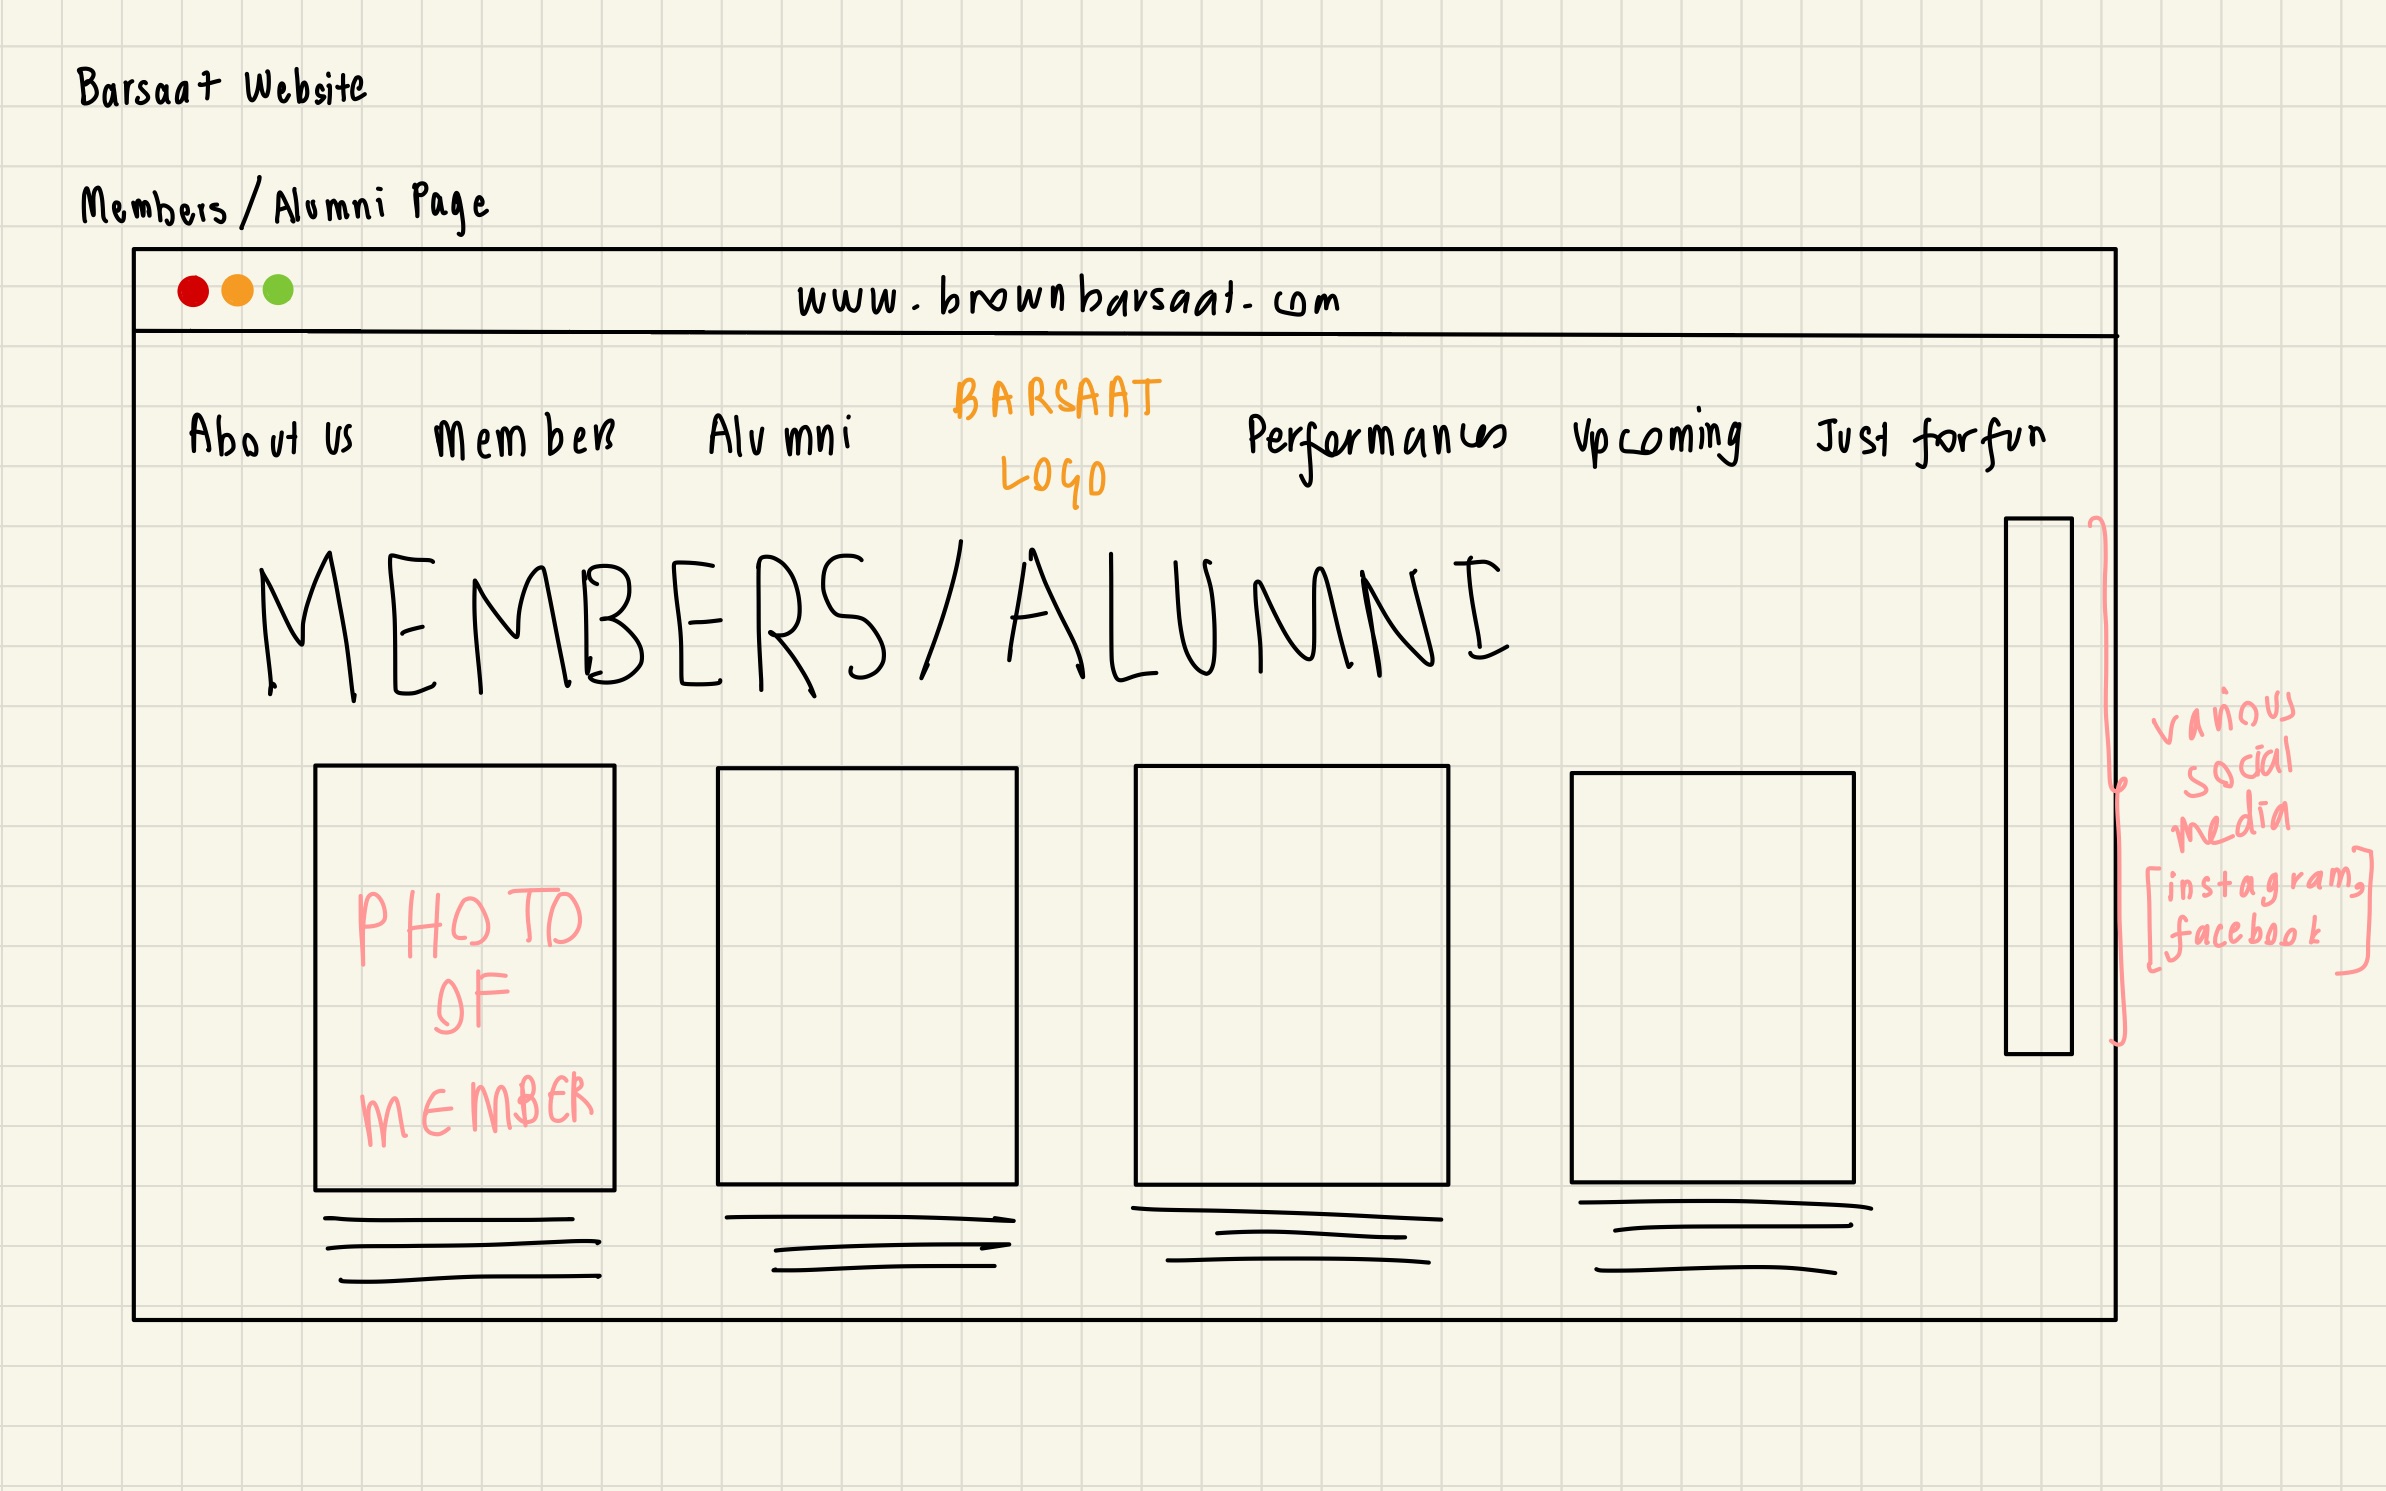 Barsaat Website
Members/Alumni Page
www.brownbarsaat.com
About us Members Alumni BARSAAT LOGO Performances Upcoming Just for fun
MEMBERS/ALUMNI
PHOTO
OF
MEMBER
various
social
media
[instagram,
facebook]